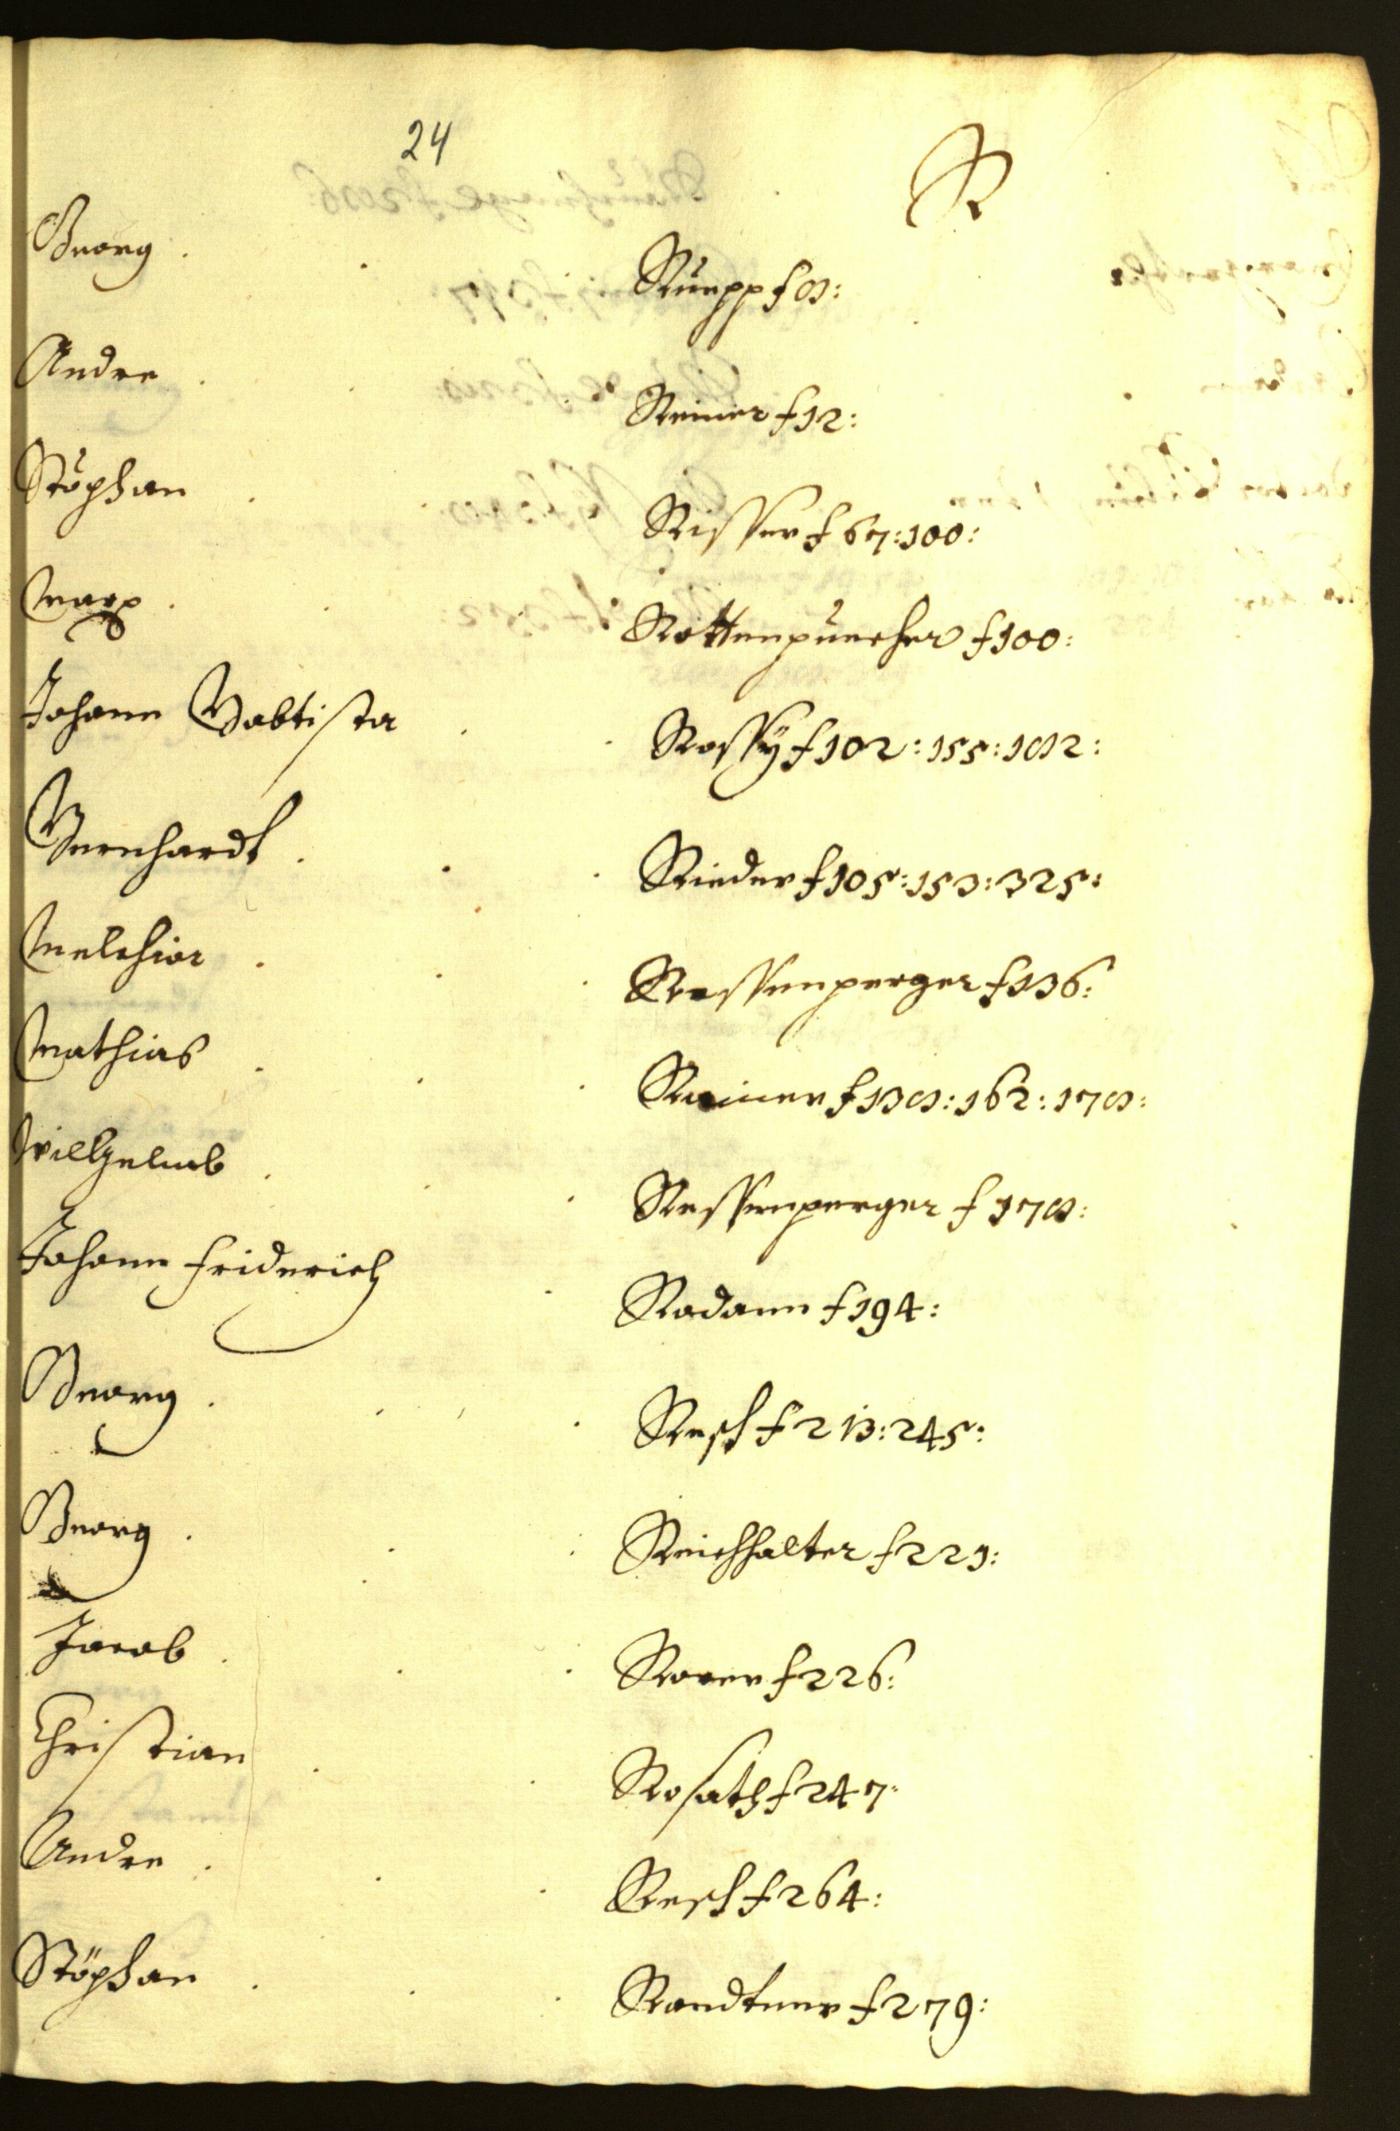 24
R
Georg Ruepp f 8:
Andre Reiner f 12:
Stöphan Risser f 67: 100:
Marx Rottenpuecher f 100:
Johann Babtista Rossÿ f 102: 155: 182:
Bernhardt Rieder f 105: 153: 325:
Melchior Ressenperger f 136:
Mathias Rainer f 138: 162: 178:
Wilhelmb Ressenperger f 178:
Johann Friderich Rodann f 194:
Georg Resch f 213: 245:
Georg Reichhalter f 221:
Jacob Rorer f 226:
Christian Rosath f 247:
Andre Resch f 264:
Stöphan Randtner f 279: